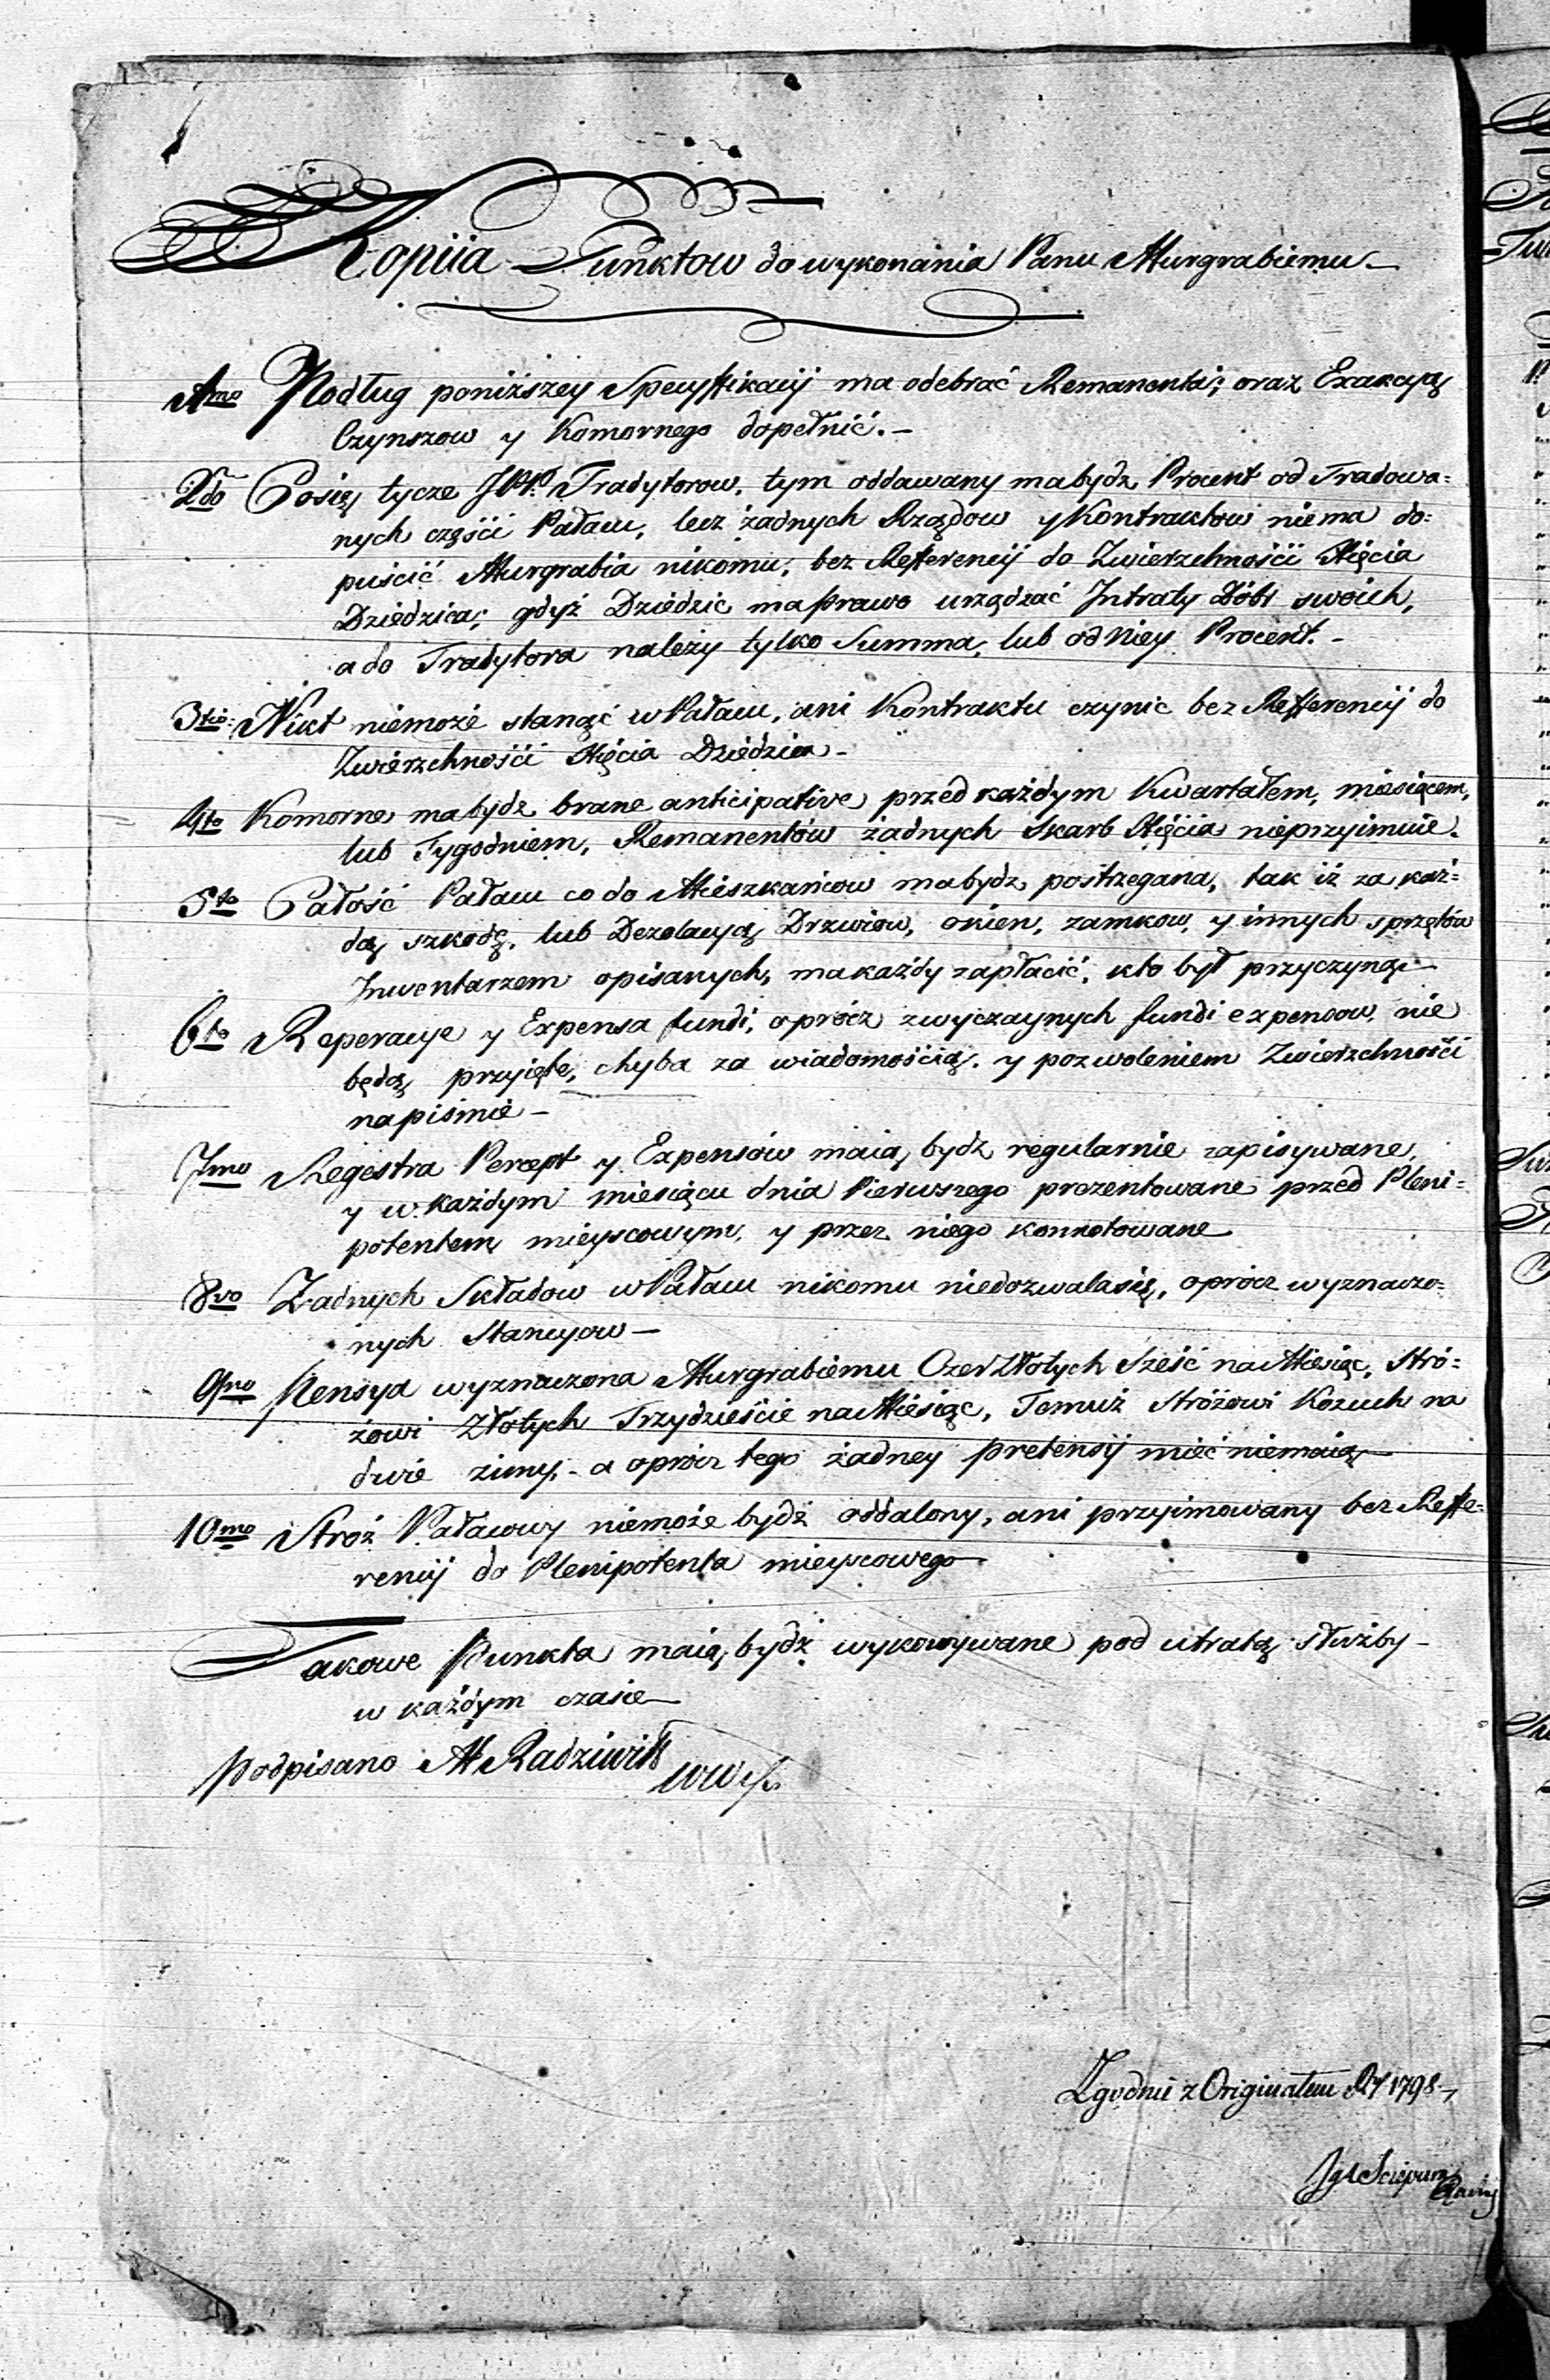 Kopiia Punktow do wykonania Panu Murgrabiemu
1mo Podług poniższey Specyffikacij ma odebrać Remanenta; oraz Exakcyą
Czynszow y Komornego dopełnić.
2do Cosię tycze JPP. Tradytorow, tym oddawany mabydz Procent od Tradowa=
nych części Pałacu, lecz żadnych Rządow y Kontraktow niema do=
puścić Murgrabia nikomu, bez Refferencij do Zwierzchności Xięcia
Dziedzica; gdyż Dziedzic maprawo urządzać Jntraty Dóbr swoich,
a do Tradytora należy tylko Summa, lub od Niey Procent.
3tio: Nikt niemoże stanąć w Pałacu, ani Kontraktu czynic bez Refferencij do
Zwierzchności Xięcia Dziedzica
4to Komorne mabydz brane anticipative przed każdym Kwartałem, miesiącem,
lub Tygodniem, Remanentów żadnych Skarb Xięcia nieprzyimuie.
5to Całość Pałacu co do Mieszkańcow mabydz postrzegana, tak iż za każ=
dą szkodę, lub Dezolacyą Drzwiow, okien, zamkow, y innych sprzętów
Jnwentarzem opisanych, makażdy zapłacić, kto był przyczyną
6to Reperacye y Expensa fundi, oprócz zwyczaynych fundi expensow, nie
będą przyięte, chyba za wiadomością, y pozwoleniem Zwierzchności
napiśmie
7mo Regestra Percept y Expensów maią bydz regularnie zapisywane,
y w każdym miesiącu dnia Pierwszego prezentowane przed Pleni=
potentem mieyscowym, y przez niego konnotowane
8vo Żadnych Składow w Pałacu nikomu niedozwalasię, oprócz wyznaczo=
nych Stancyow
9no Pensya wyznaczona Murgrabiemu Czer Złotych Sześć na Miesiąc, Stró=
żowi Złotych Trzydzieście na Miesiąc, Temuż Stróżowi Kożuch na
dwie zimy, a oprócz tego żadney pretensij mieć niemaią
10mo Stróż Pałacowy niemoże bydź oddalony, ani przyimowany bez Reffe=
rencij do Plenipotenta mieyscowego
Takowe Punkta maią bydź wykonywane pod utratą służby
w każdym czasie
Podpisano M Radziwiłł
Zgodnie z Originałem 1798